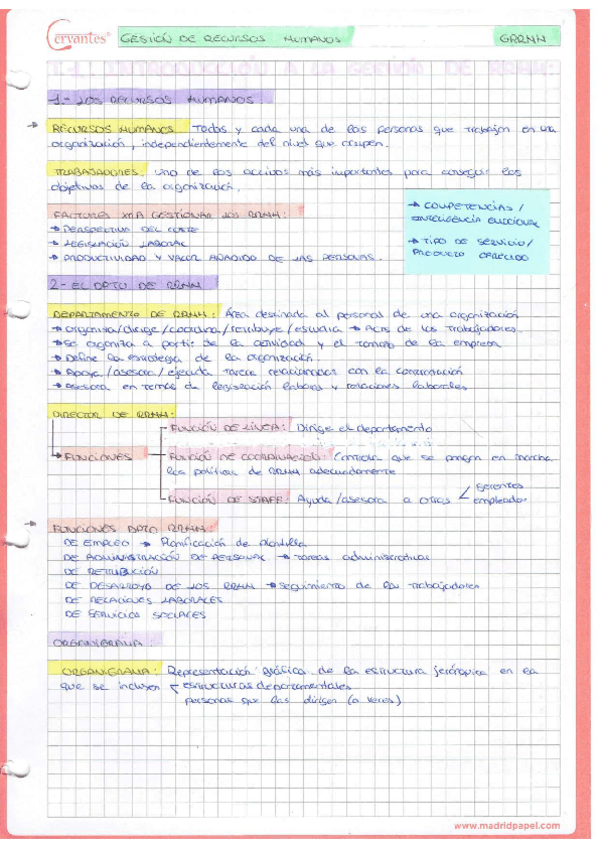 Cervantes GESTIÓN DE RECURSOS HUMANOS GRRHH
T-1. INTRODUCCIÓN A LA GESTIÓN DE RRHH:
1.- LOS RECURSOS HUMANOS:
→ RECURSOS HUMANOS: Todas y cada una de las personas que trabajan en una
organización, independientemente del nivel que ocupen.
TRABAJADORES: Uno de los activos más importantes para conseguir los
objetivos de la organización.
FACTORES XA GESTIONAR LOS RRHH:
→ PERSPECTIVA DEL COSTE
→ LEGISLACIÓN LABORAL
→ PRODUCTIVIDAD Y VALOR AÑADIDO DE LAS PERSONAS.
→ COMPETENCIAS /
INTELIGENCIA EMOCIONAL
→ TIPO DE SERVICIO /
PRODUCTO OFRECIDO
2- EL DPTO DE RRHH:
DEPARTAMENTO DE RRHH: Área destinada al personal de una organización
→ Organiza/dirige/coordina/retribuye/estudia → Acts de los trabajadores.
→ Se organiza a partir de la actividad y el tamaño de la empresa
→ Define la estrategia de la organización
→ Apoya/asesora/ejecuta tareas relacionadas con la contratación
→ Asesora en temas de legislación laboral y relaciones laborales
DIRECTOR DE RRHH:
FUNCIÓN DE LÍNEA: Dirige el departamento
→ FUNCIONES
FUNCIÓN DE COORDINACIÓN: Controla que se pongan en marcha
las políticas de RRHH adecuadamente
FUNCIÓN DE STAFF: Ayuda/asesora a otros < gerentes
empleados
→ FUNCIONES DPTO RRHH:
DE EMPLEO → Planificación de plantilla
DE ADMINISTRACIÓN DE PERSONAL → tareas administrativas
DE RETRIBUCIÓN
DE DESARROYO DE LOS RRHH → seguimiento de los trabajadores
DE RELACIONES LABORALES
DE SERVICIOS SOCIALES
ORGANIGRAMA:
ORGANIGRAMA: Representación gráfica de la estructura jerárquica en la
que se incluyen < estructuras departamentales
personas que las dirigen (a veces)
www.madridpapel.com